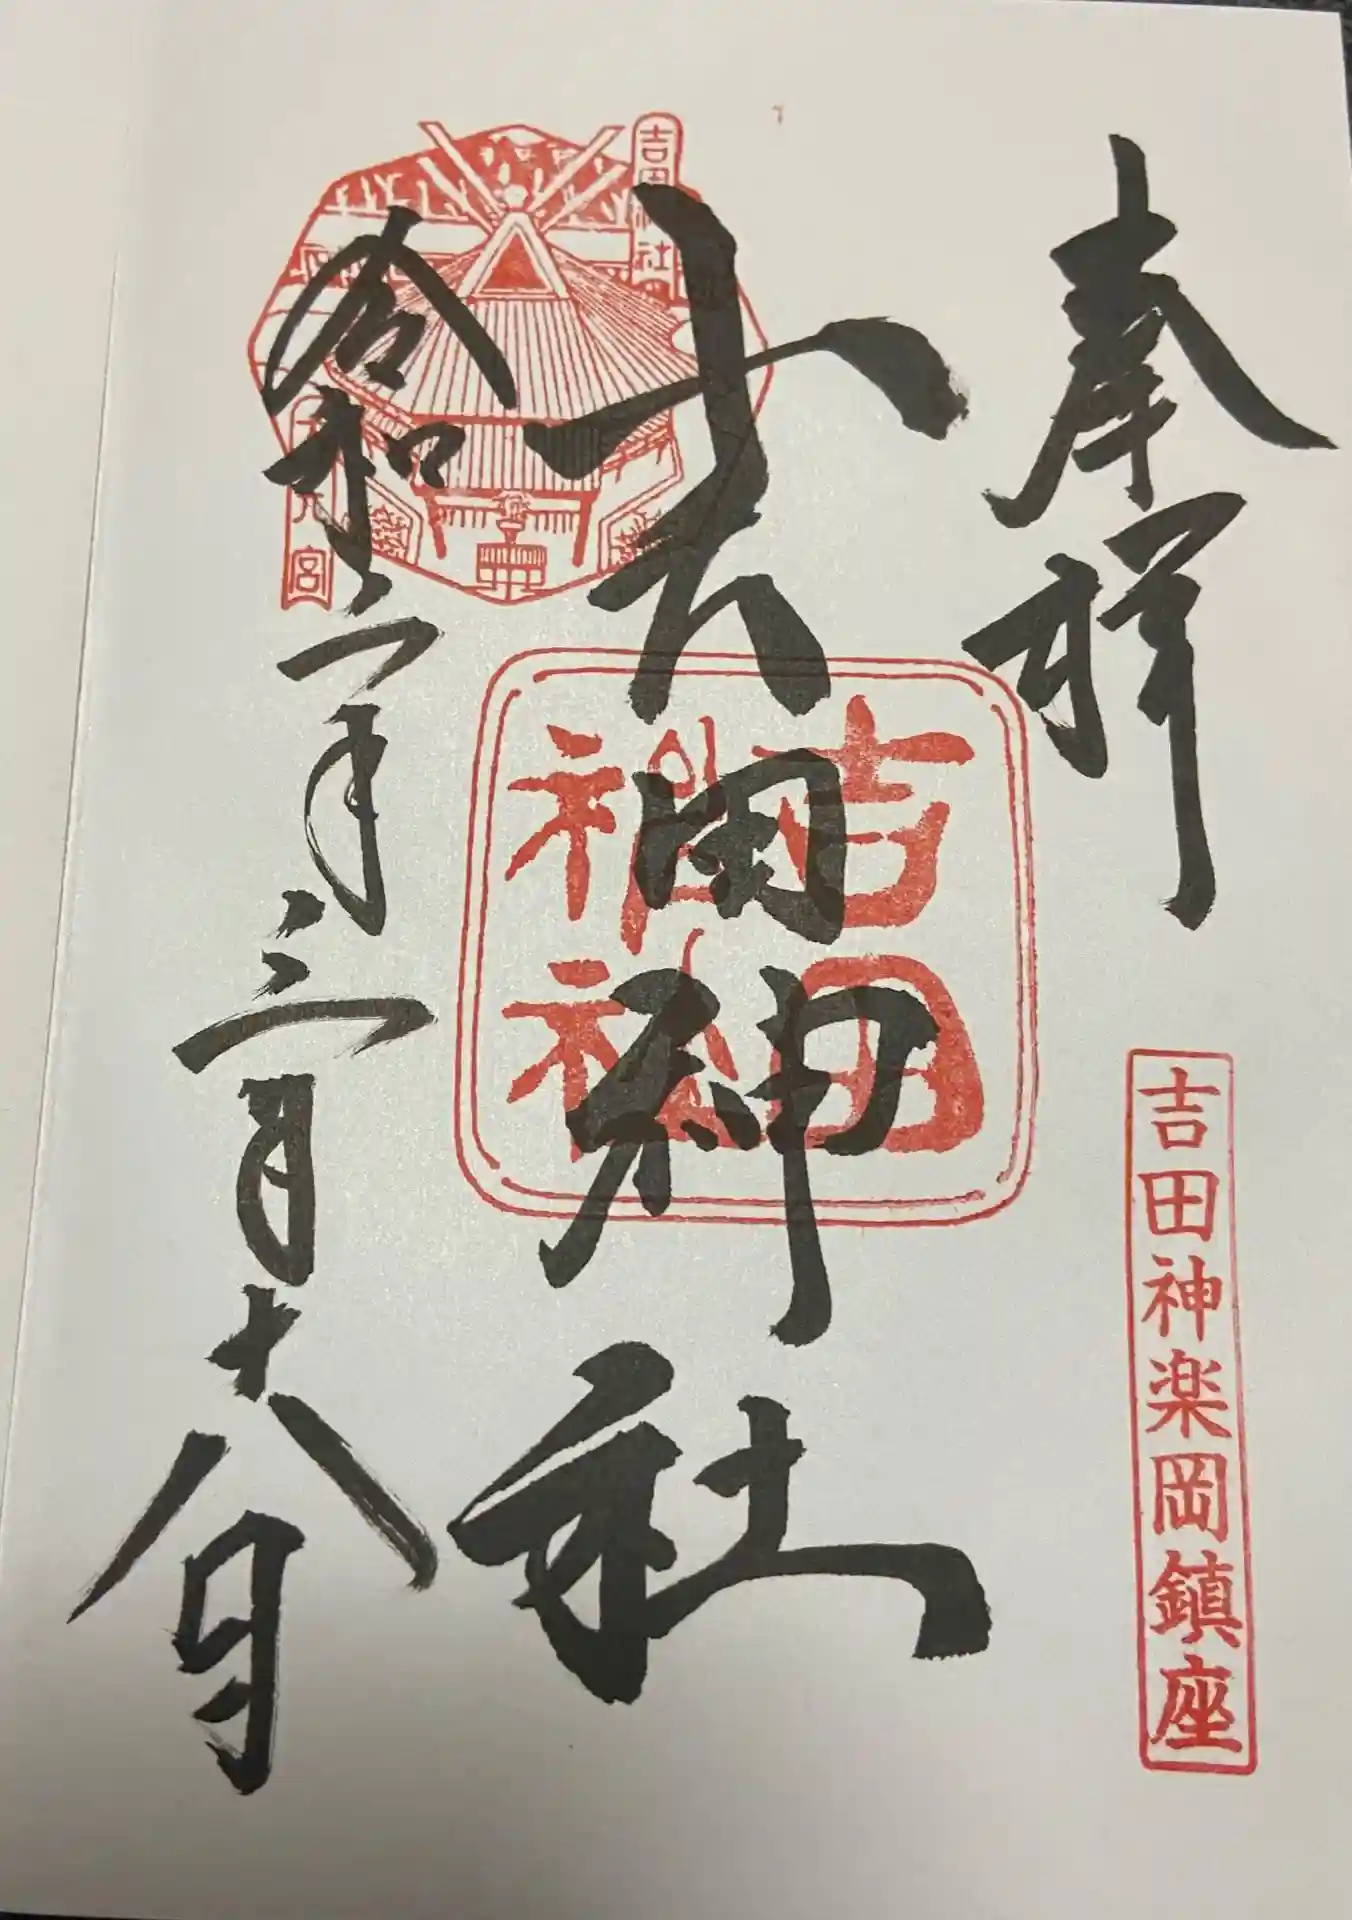 奉拝
吉田神楽岡鎮座
吉田神社
吉田神社
吉田神社
大元宮
令和二年三月十八日